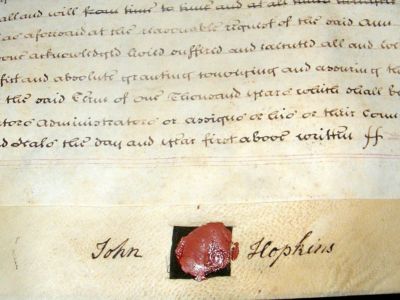 all and will from time to time and at all times
as aforesaid at the reasonable request of the said Ann
acknowledge levied suffered and executed all and
and absolute granting conveying and assuring the
the said Term of one Thousand years which shall be
Administrators or assigns or his or their Coun
seals the day and year first above written
John Hopkins